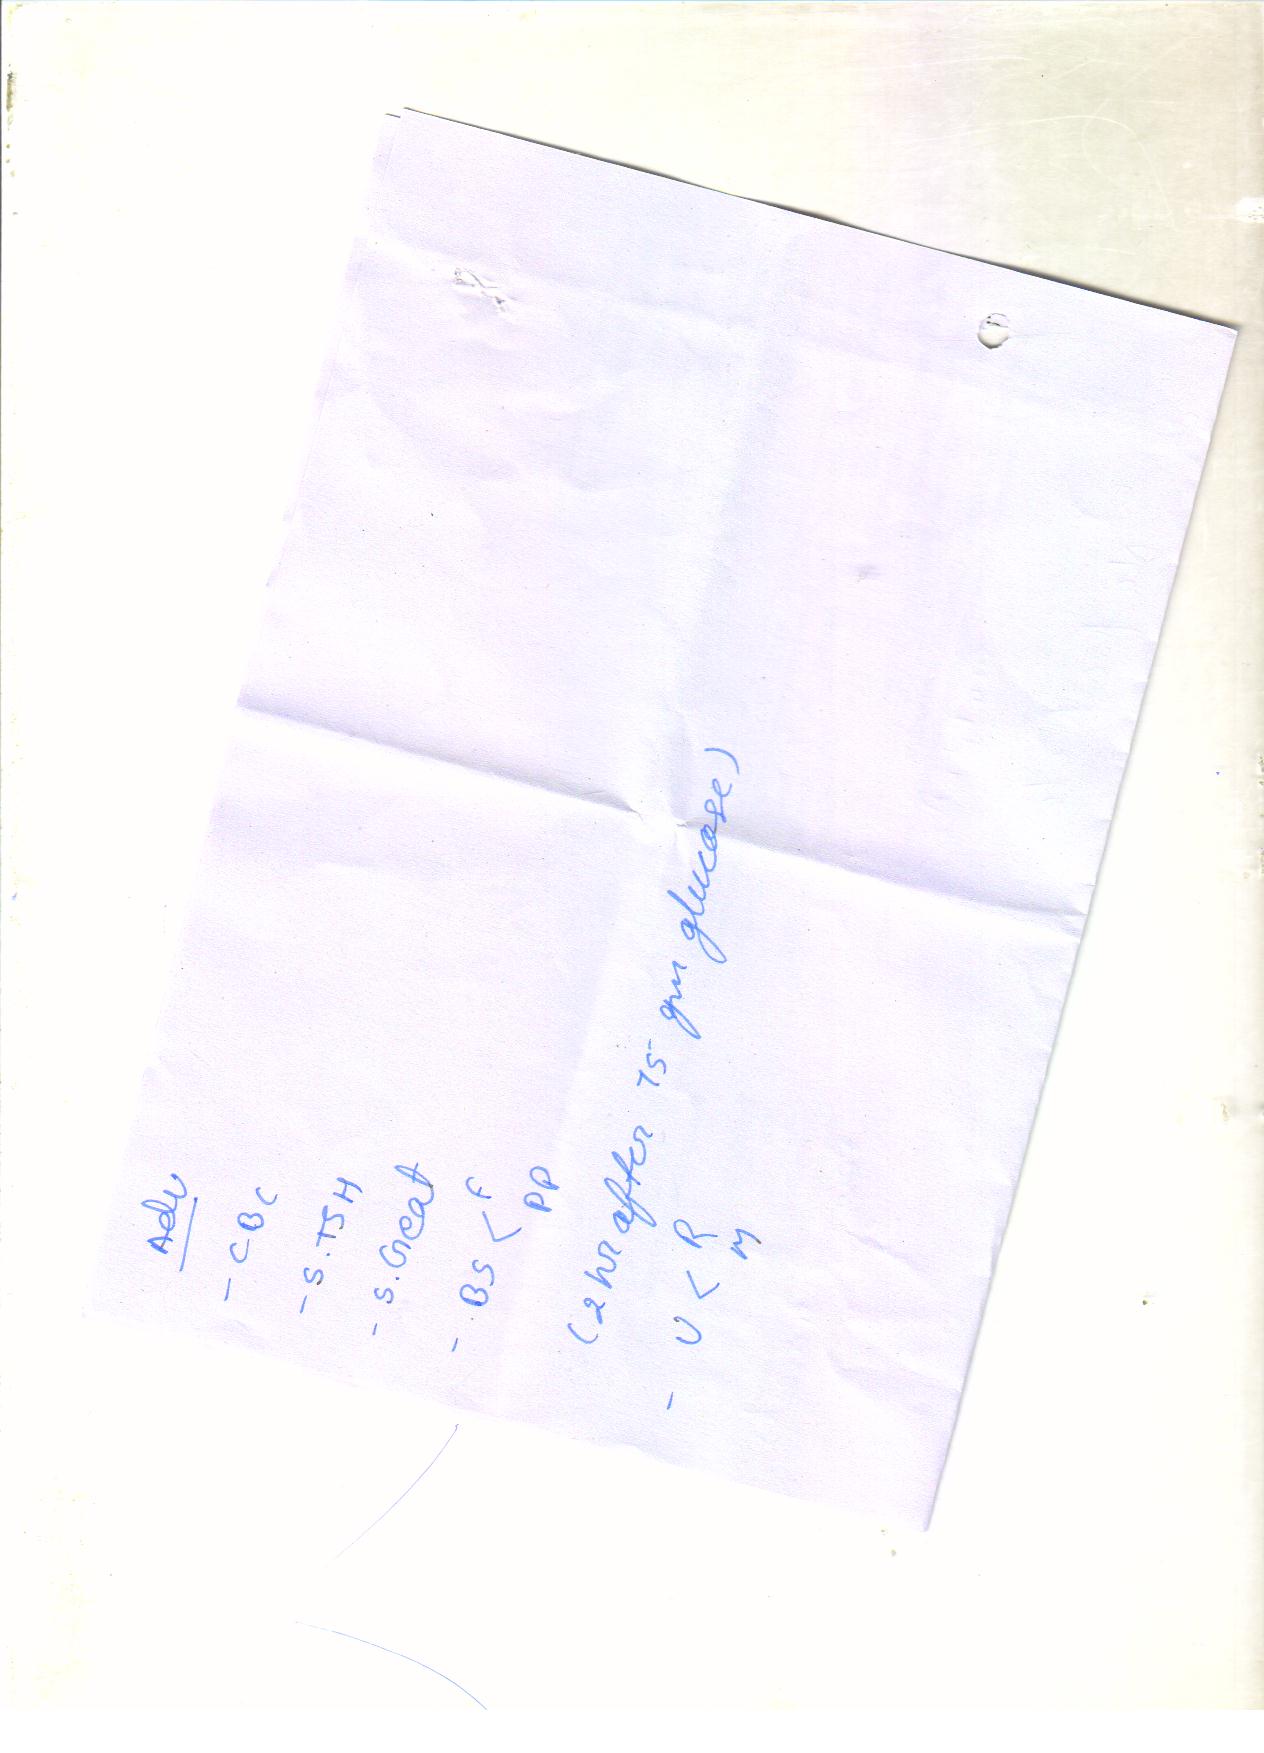 Adv
- CBC
- S.TSH
- S.Creat
- BS < F
PP
(2 hr after 75 gm glucose)
- U < R
M